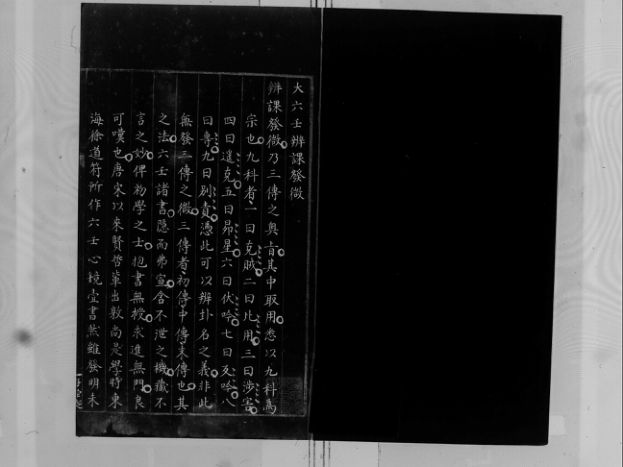 大六壬辨課發微
辨課發微乃三傳之奧旨其中取用悉以九科為
宗也九科者一曰克賊二曰比用三曰涉害
四曰遥克五曰昴星六曰伏吟七曰反吟八
曰專九曰別責憑此可以辨卦名之義非此
無發三傳之微三傳者初傳中傳末傳也其
之法六壬諸書隱而弗宣含不泄之機纖不
言之妙俾初學之士抱書無投求進無門良
可嘆也唐宋以來賢哲輩出敦尚是學時東
海徐道符所作六壬心鏡壹書然雖發明未